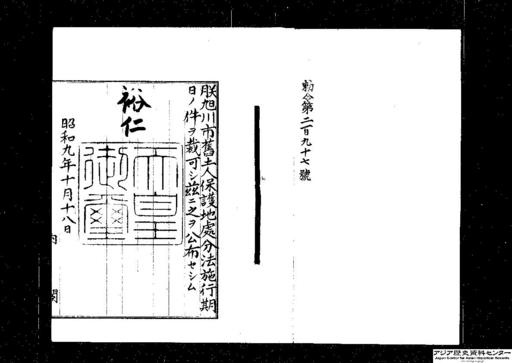 勅令第二百九十七號
朕旭川市舊土人保護地處分法施行期
日ノ件ヲ裁可シ茲ニ之ヲ公布セシム
裕仁
天皇
御璽
昭和九年十月十八日
内閣
アジア歴史資料センター
Japan Center for Asian Historical Records